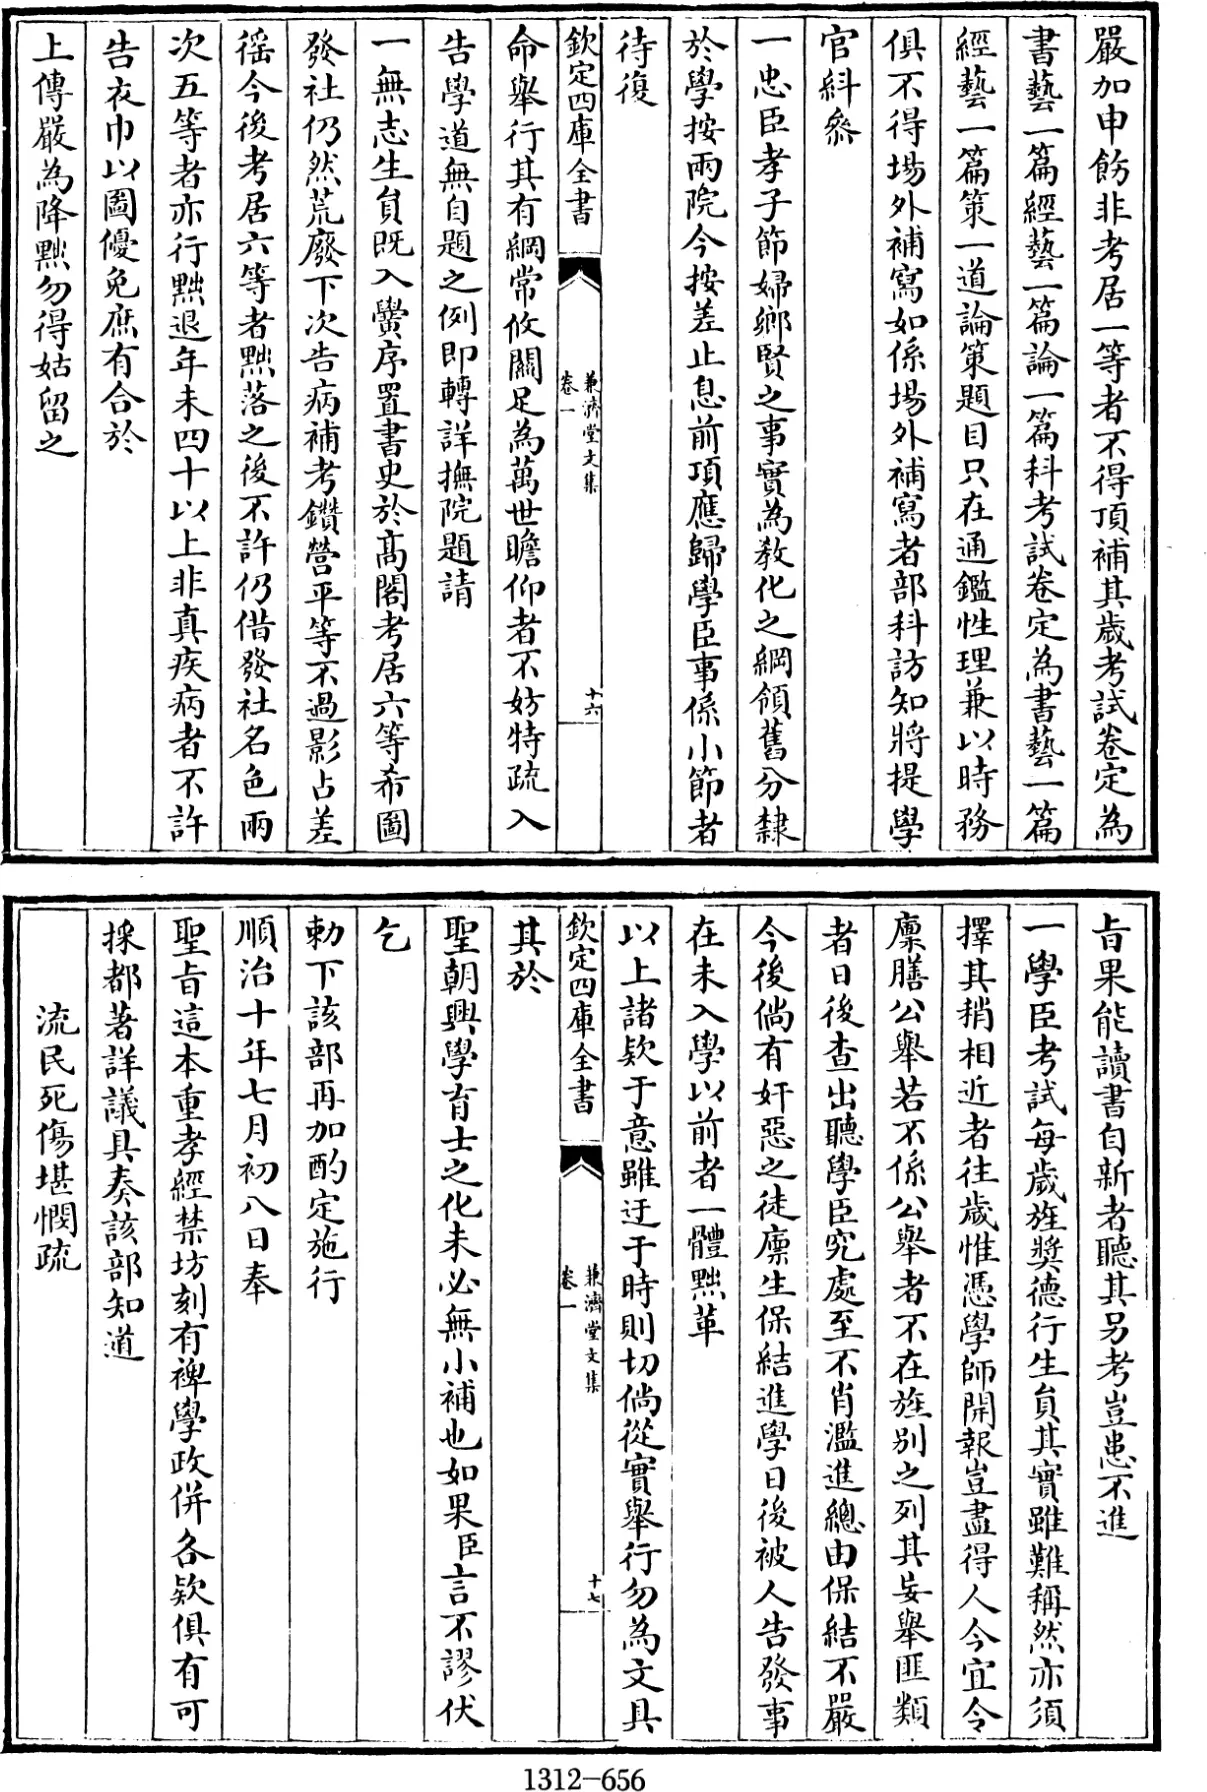 嚴加申飭非考居一等者不得頂補其歲考試卷定為
書藝一篇經藝一篇論一篇科考試卷定為書藝一篇
經藝一篇策一道論策題目只在通鑑性理兼以時務
俱不得場外補寫如係場外補寫者部科訪知將提學
官糾叅
一忠臣孝子節婦鄉賢之事實為教化之綱領舊分隸
於學按兩院今按差止息前項應歸學臣事係小節者
待復
欽定四庫全書
兼濟堂文集
卷一
十六
命舉行其有綱常攸關足為萬世瞻仰者不妨特疏入
告學道無自題之例即轉詳撫院題請
一無志生員既入黌序置書史於髙閣考居六等希圖
發社仍然荒廢下次告病補考鑽營平等不過影占差
徭今後考居六等者黜落之後不許仍借發社名色兩
次五等者亦行黜退年未四十以上非真疾病者不許
告衣巾以圖優免庶有合於
上傳嚴為降黜勿得姑留之
旨果能讀書自新者聽其另考豈患不進
一學臣考試每歲旌奬德行生員其實雖難稱然亦須
擇其稍相近者往歲惟憑學師開報豈盡得人今宜令
廩膳公舉若不係公舉者不在旌别之列其妄舉匪類
者日後查出聽學臣究處至不肖濫進總由保結不嚴
今後倘有奸惡之徒廩生保結進學日後被人告發事
在未入學以前者一體黜革
以上諸欵于意雖迂于時則切倘從實舉行勿為文具
欽定四庫全書
兼濟堂文集
卷一
十七
其於
聖朝興學育士之化未必無小補也如果臣言不謬伏
乞
勅下該部再加酌定施行
順治十年七月初八日奉
聖旨這本重孝經禁坊刻有裨學政併各欵俱有可
採都著詳議具奏該部知道
流民死傷堪憫疏
1312-656